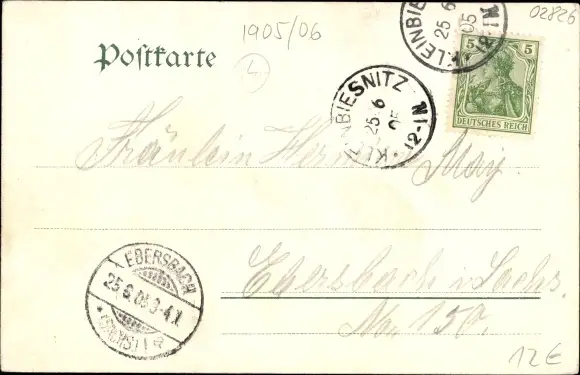 1905/06
02826
Postkarte
4
KLEINBIESNITZ
25 6
05
12-1N
5 5
DEUTSCHES REICH
KLEINBIESNITZ
25 6
05
12-1N
Fräulein May.
EBERSBACH
25.6.05 3-4.N.
(SACHS.)
Ebersbach i. Sachs.
No. 150.
12€